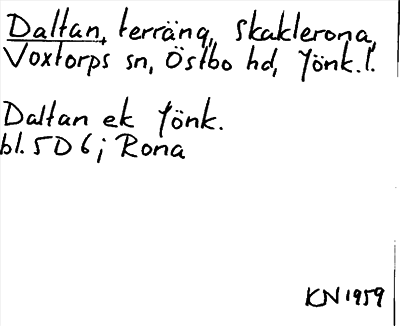 Daltan, terräng, Skaklerona,
Voxtorps sn, Östbo hd, Jönk.l.
Daltan ek Jönk.
bl. 5D6; Rona
KN 1959